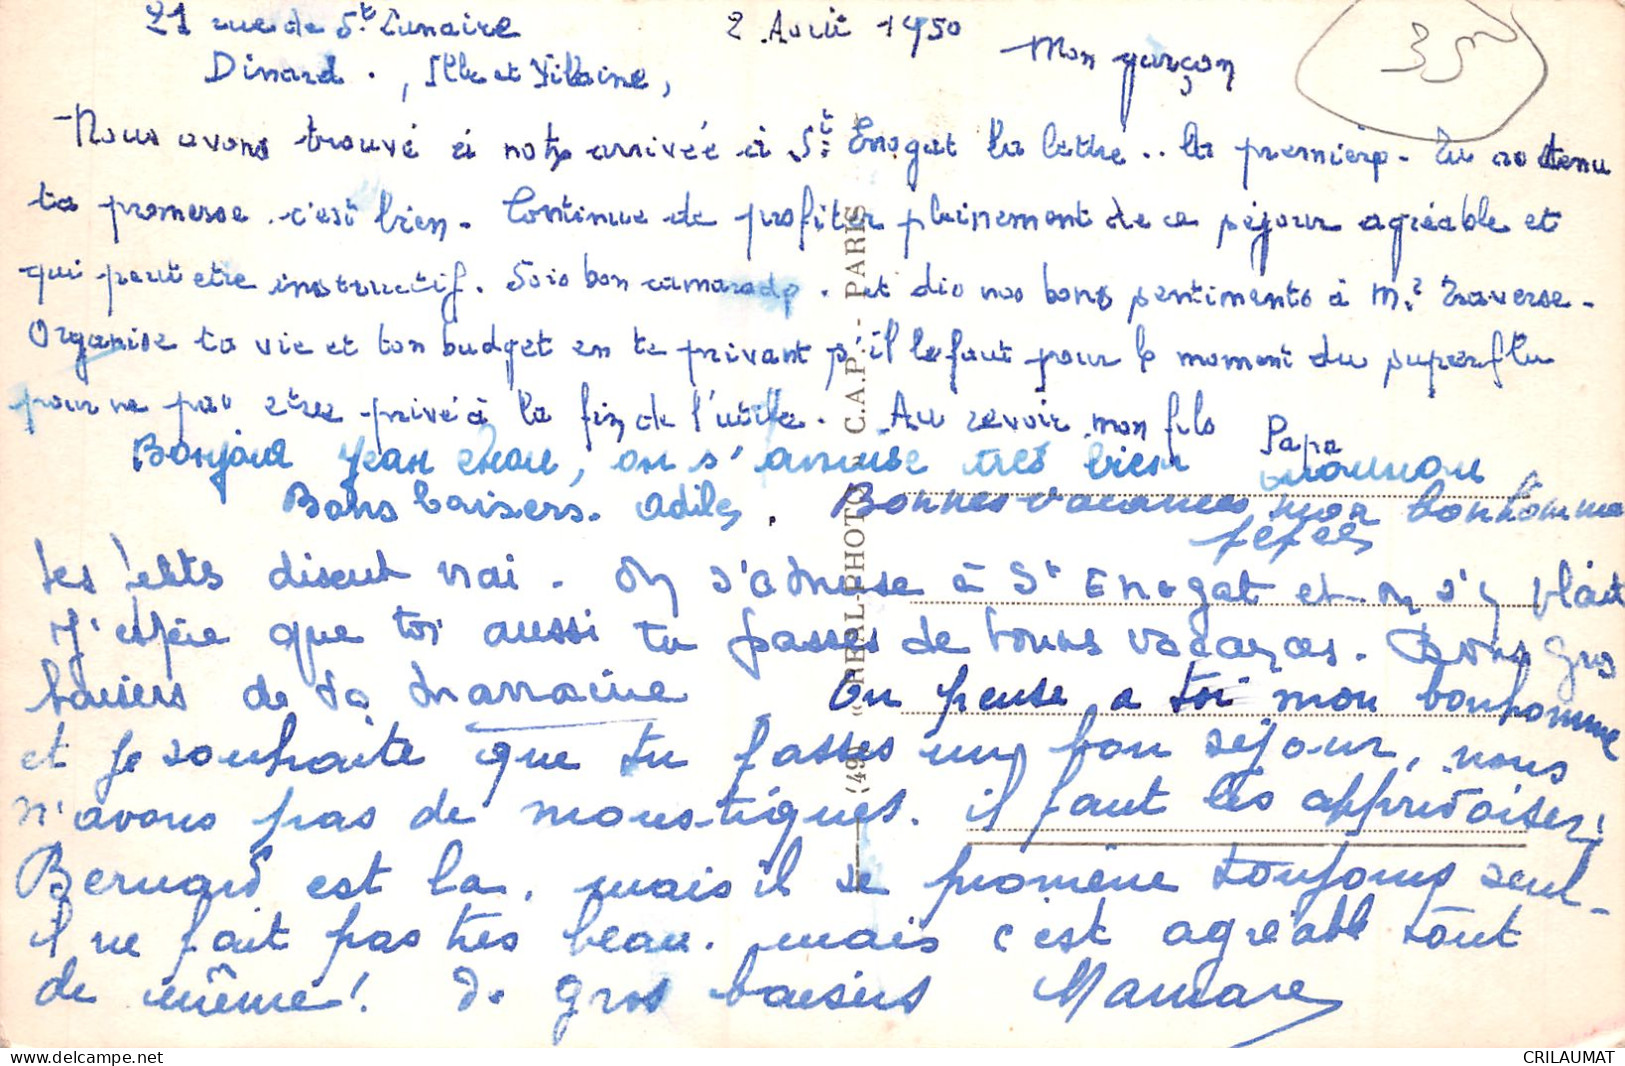 21 rue de St Lunaire 2 Avril 1950
Dinard, Ille et Vilaine, Mon garçon
35
Nous avons trouvé à notre arrivée à St Enogat ta lettre.. la première. Tu as tenu
ta promesse. c'est bien. Continue de profiter pleinement de ce séjour agréable et
qui peut etre instructif. Sois bon camarade. et dis nos bons sentiments à Mr Traverse.
Organise ta vie et ton budget en te privant s'il le faut pour le moment du superflu
pour ne pas etre privé à la fin de l'utile. Au revoir mon fils Papa
Bonjour Jean on s'amuse très bien
Bons baisers. Odile. Bonnes vacances mon bonhomme
pépé
Les petits disent vrai. On s'amuse à St Enogat et on s'y plait
J'espère que toi aussi tu passes de bonnes vacances. Bons gros
baisers de ta Marraine On pense a toi mon bonhomme
et je souhaite que tu passes un bon séjour, nous
n'avons pas de moustiques. il faut les apprivoiser!
Bernard est la, mais il se promène toujours seul.
il ne fait pas très beau. mais c'est agréable tout
de même! de gros baisers Mamare
(49) « REAL-PHOTO » C.A.P. - PARIS
CRILAUMAT